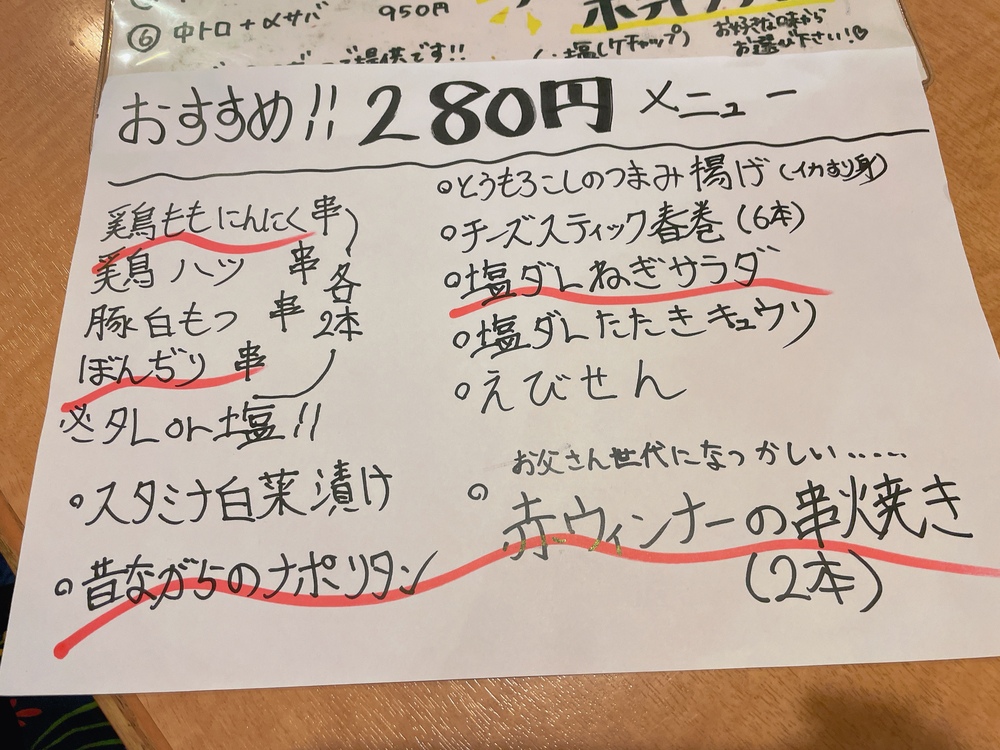 ⑥ 中トロ+〆サバ 950円
で提供です!!
塩(ケチャップ)
お好きな味から
お選び下さい!♡
おすすめ!! 280円 メニュー
鶏ももにんにく串
鶏ハツ 串
豚白もつ 串
ぼんぢり 串
各2本
※タレor塩!!
・スタミナ白菜漬け
・昔ながらのナポリタン
・とうもろこしのつまみ揚げ(イカすり身)
・チーズスティック春巻(6本)
・塩ダレねぎサラダ
・塩ダレたたきキュウリ
・えびせん
お父さん世代になつかしい……
・赤ウィンナーの串焼き
(2本)